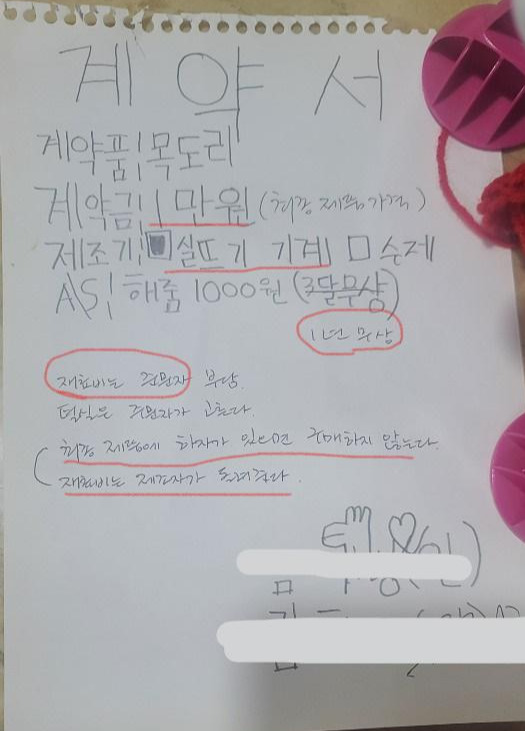 계약서
계약품 | 목도리
계약금 | 만원 (최종 제품가격)
제조기 | 실뜨기 기계 수제
A\S | 해줌 1000원 (3달무상)
1년 무상
재료비는 주문자 부담.
털실은 주문자가 고른다.
최종 제품에 하자가 있으면 구매하지 않는다.
재료비는 제조자가 돌려준다.
(인)